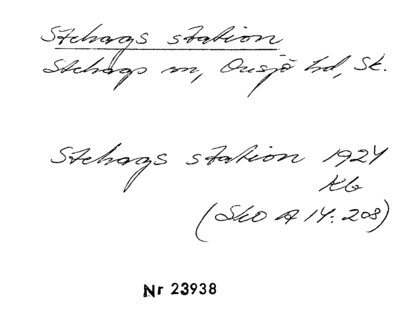 Stehags station
Stehags sn, Onsjö hd, Sk.
Stehags station 1924
Kb
(Sko A 14:208)
Nr 23938